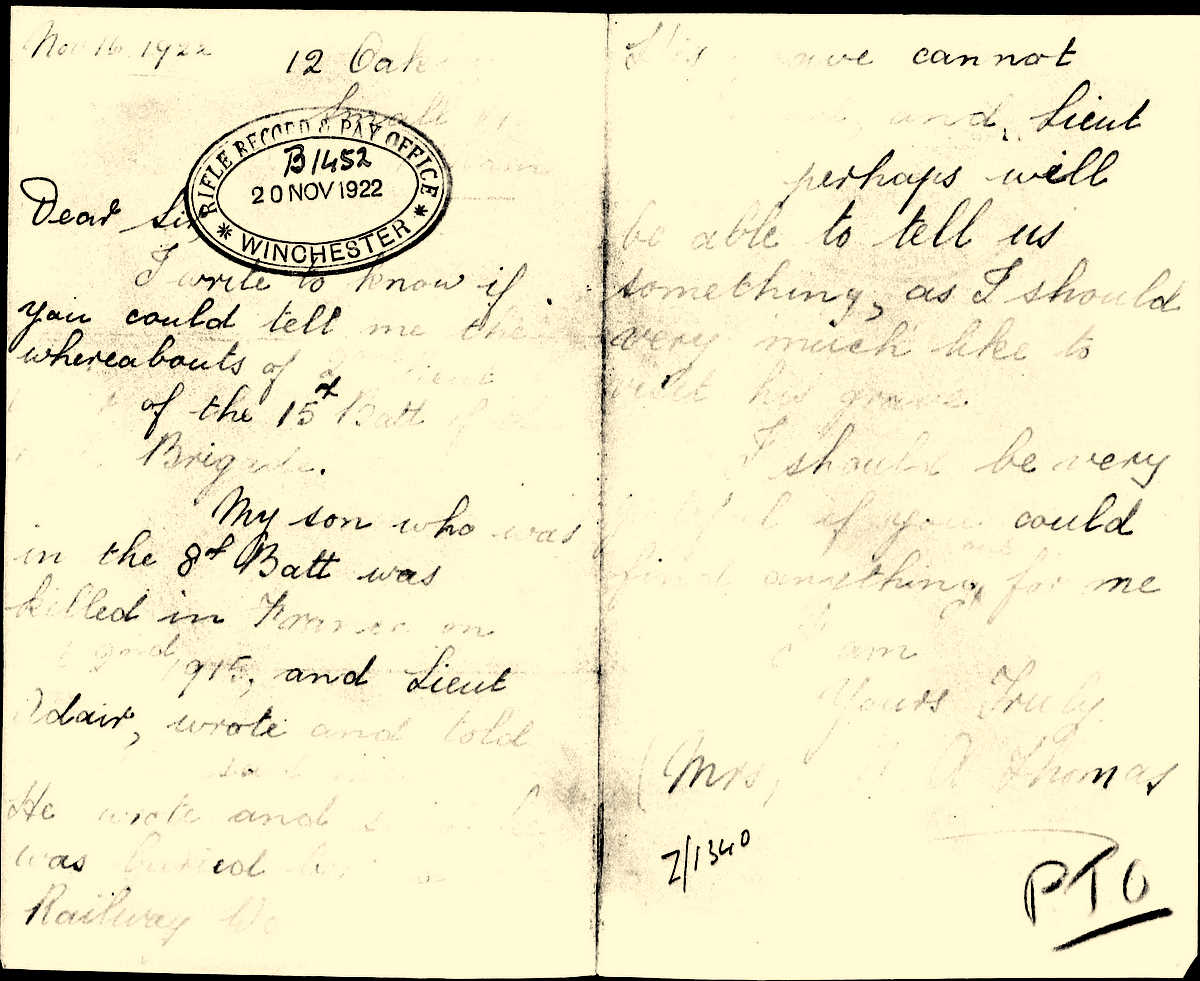 Nov 16 1922
12 Oak
Small
RIFLE RECORD & PAY OFFICE
B1452
20 NOV 1922
* WINCHESTER *
Dear Sir,
I write to know if
you could tell me the
whereabouts of a Lieut
of the 15th Batt of the
Brigade.
My son who was
in the 8th Batt was
killed in France on
2nd 1915, and Lieut
Adair, wrote and told
He wrote and
was buried
Railway
His grave cannot
and, Lieut
perhaps will
be able to tell us
something, as I should
very much like to
visit his grave
I should be very
if you could
find anything out for me
I am
Yours Truly
(Mrs, A Thomas
Z/1340
PTO